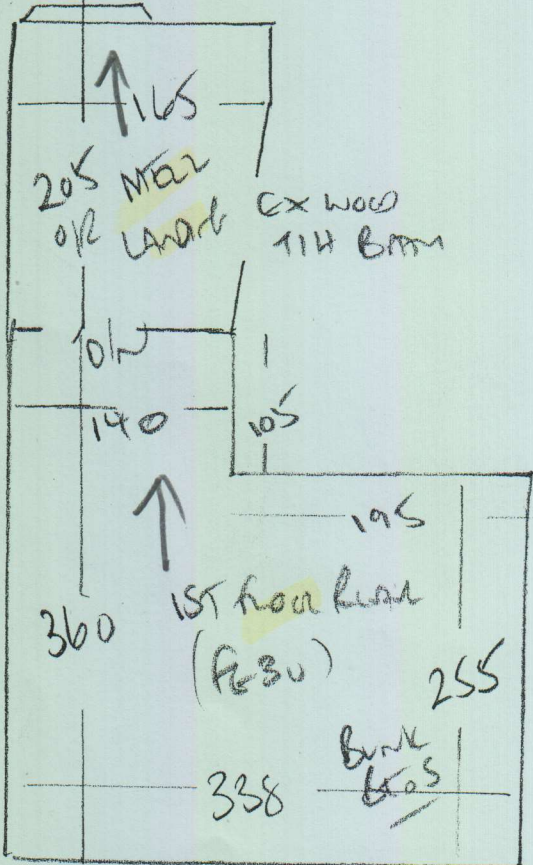 165
205 MEZZ
O/R LANDING
EX WOOD
O/N
140
105
195
1ST FLOOR REAR
360
255
BUNK
BEDS
338